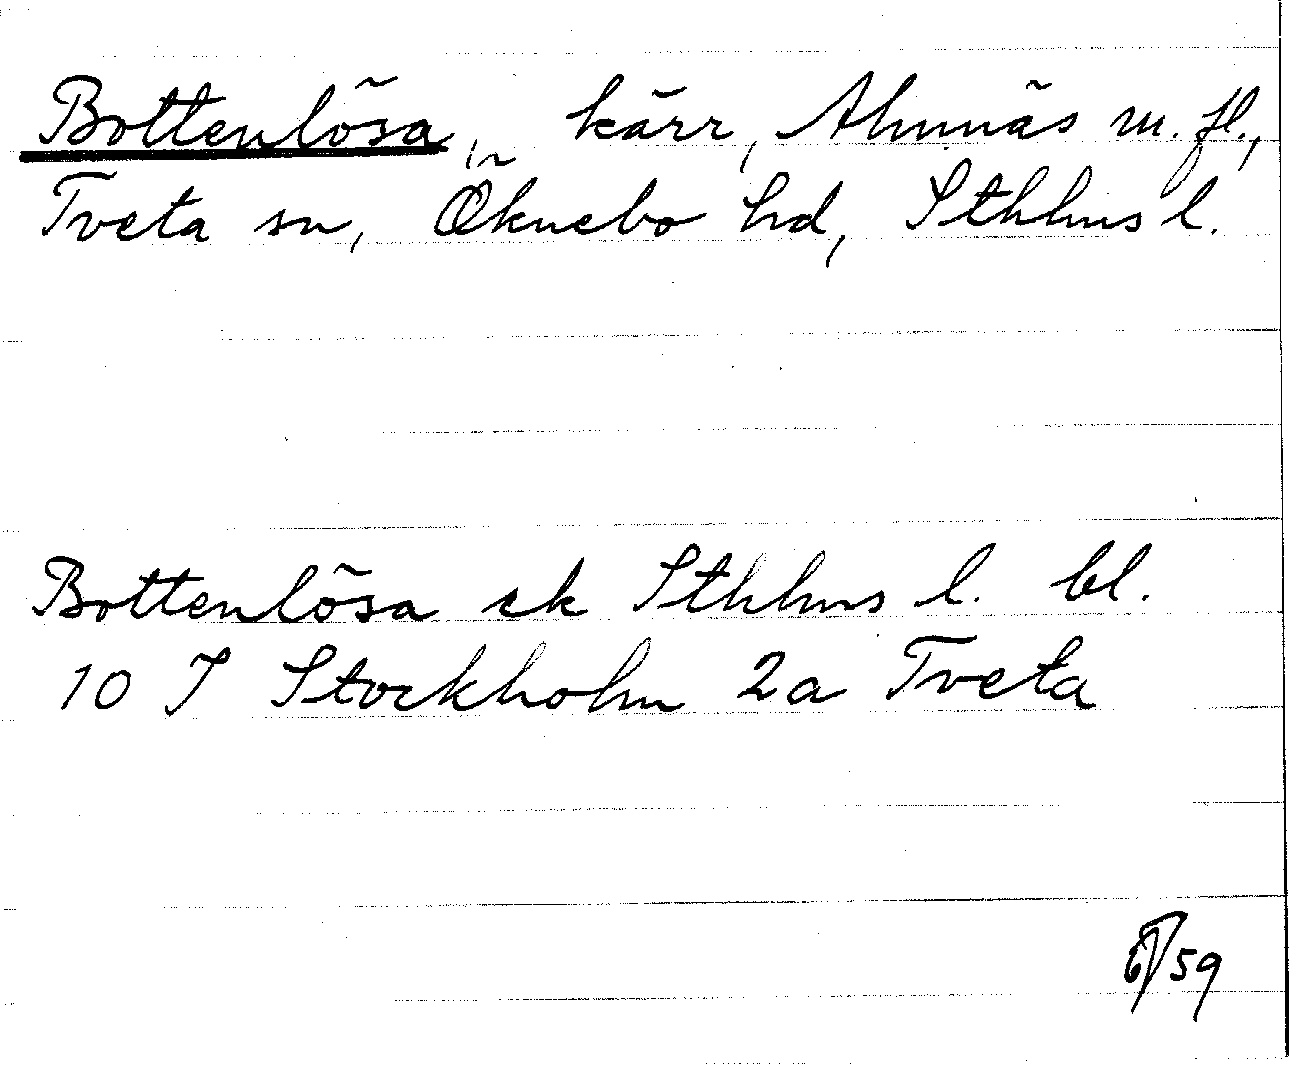 Bottenlösa, kärr, Almnäs m. fl.,
Tveta sn, Öknebo hd, Sthlms l.
Bottenlösa ek Sthlms l. bl.
10 J Stockholm 2a Tveta
59